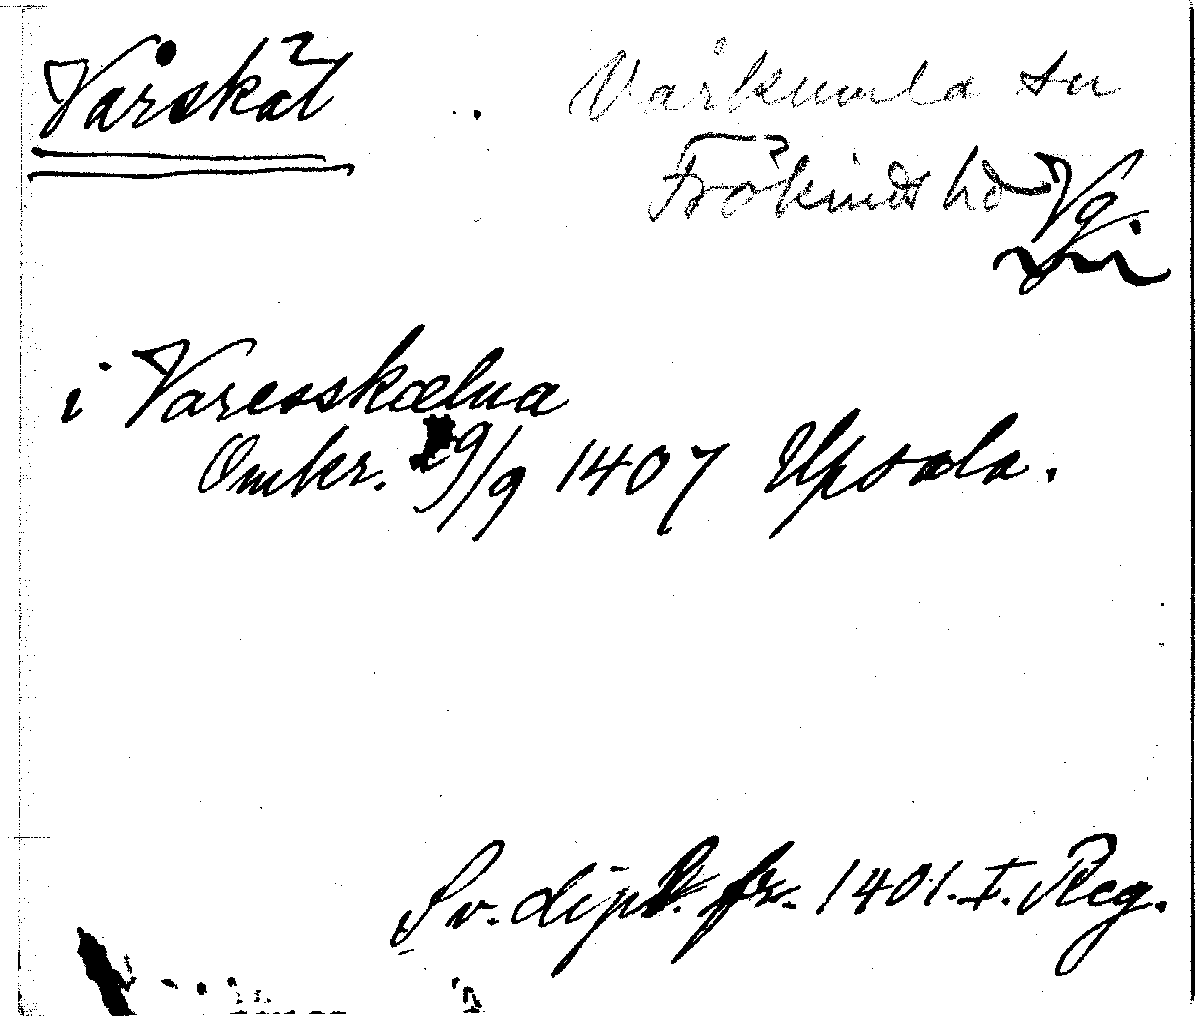 Vårskål
Vårkumla sn
Frökinds hd Vg.
i Varesskælna
Omkr. 29/9 1407 Upsala.
Sv. dipl. fr. 1401. I. Reg.